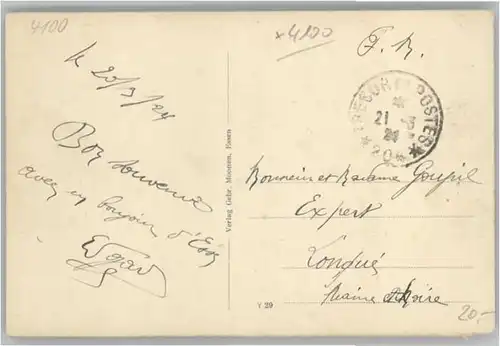 4100
x4100
F. M.
le 20/3/24
Bon souvenir
avec un bonjour d'Essen
Edgard
Verlag Gebr. Moonen, Essen
TRESOR ET POSTES
21 -3
24
* 20 *
Monsieur et Madame Goupil
Expert
Longué
Maine et Loire
Y 29
20.-